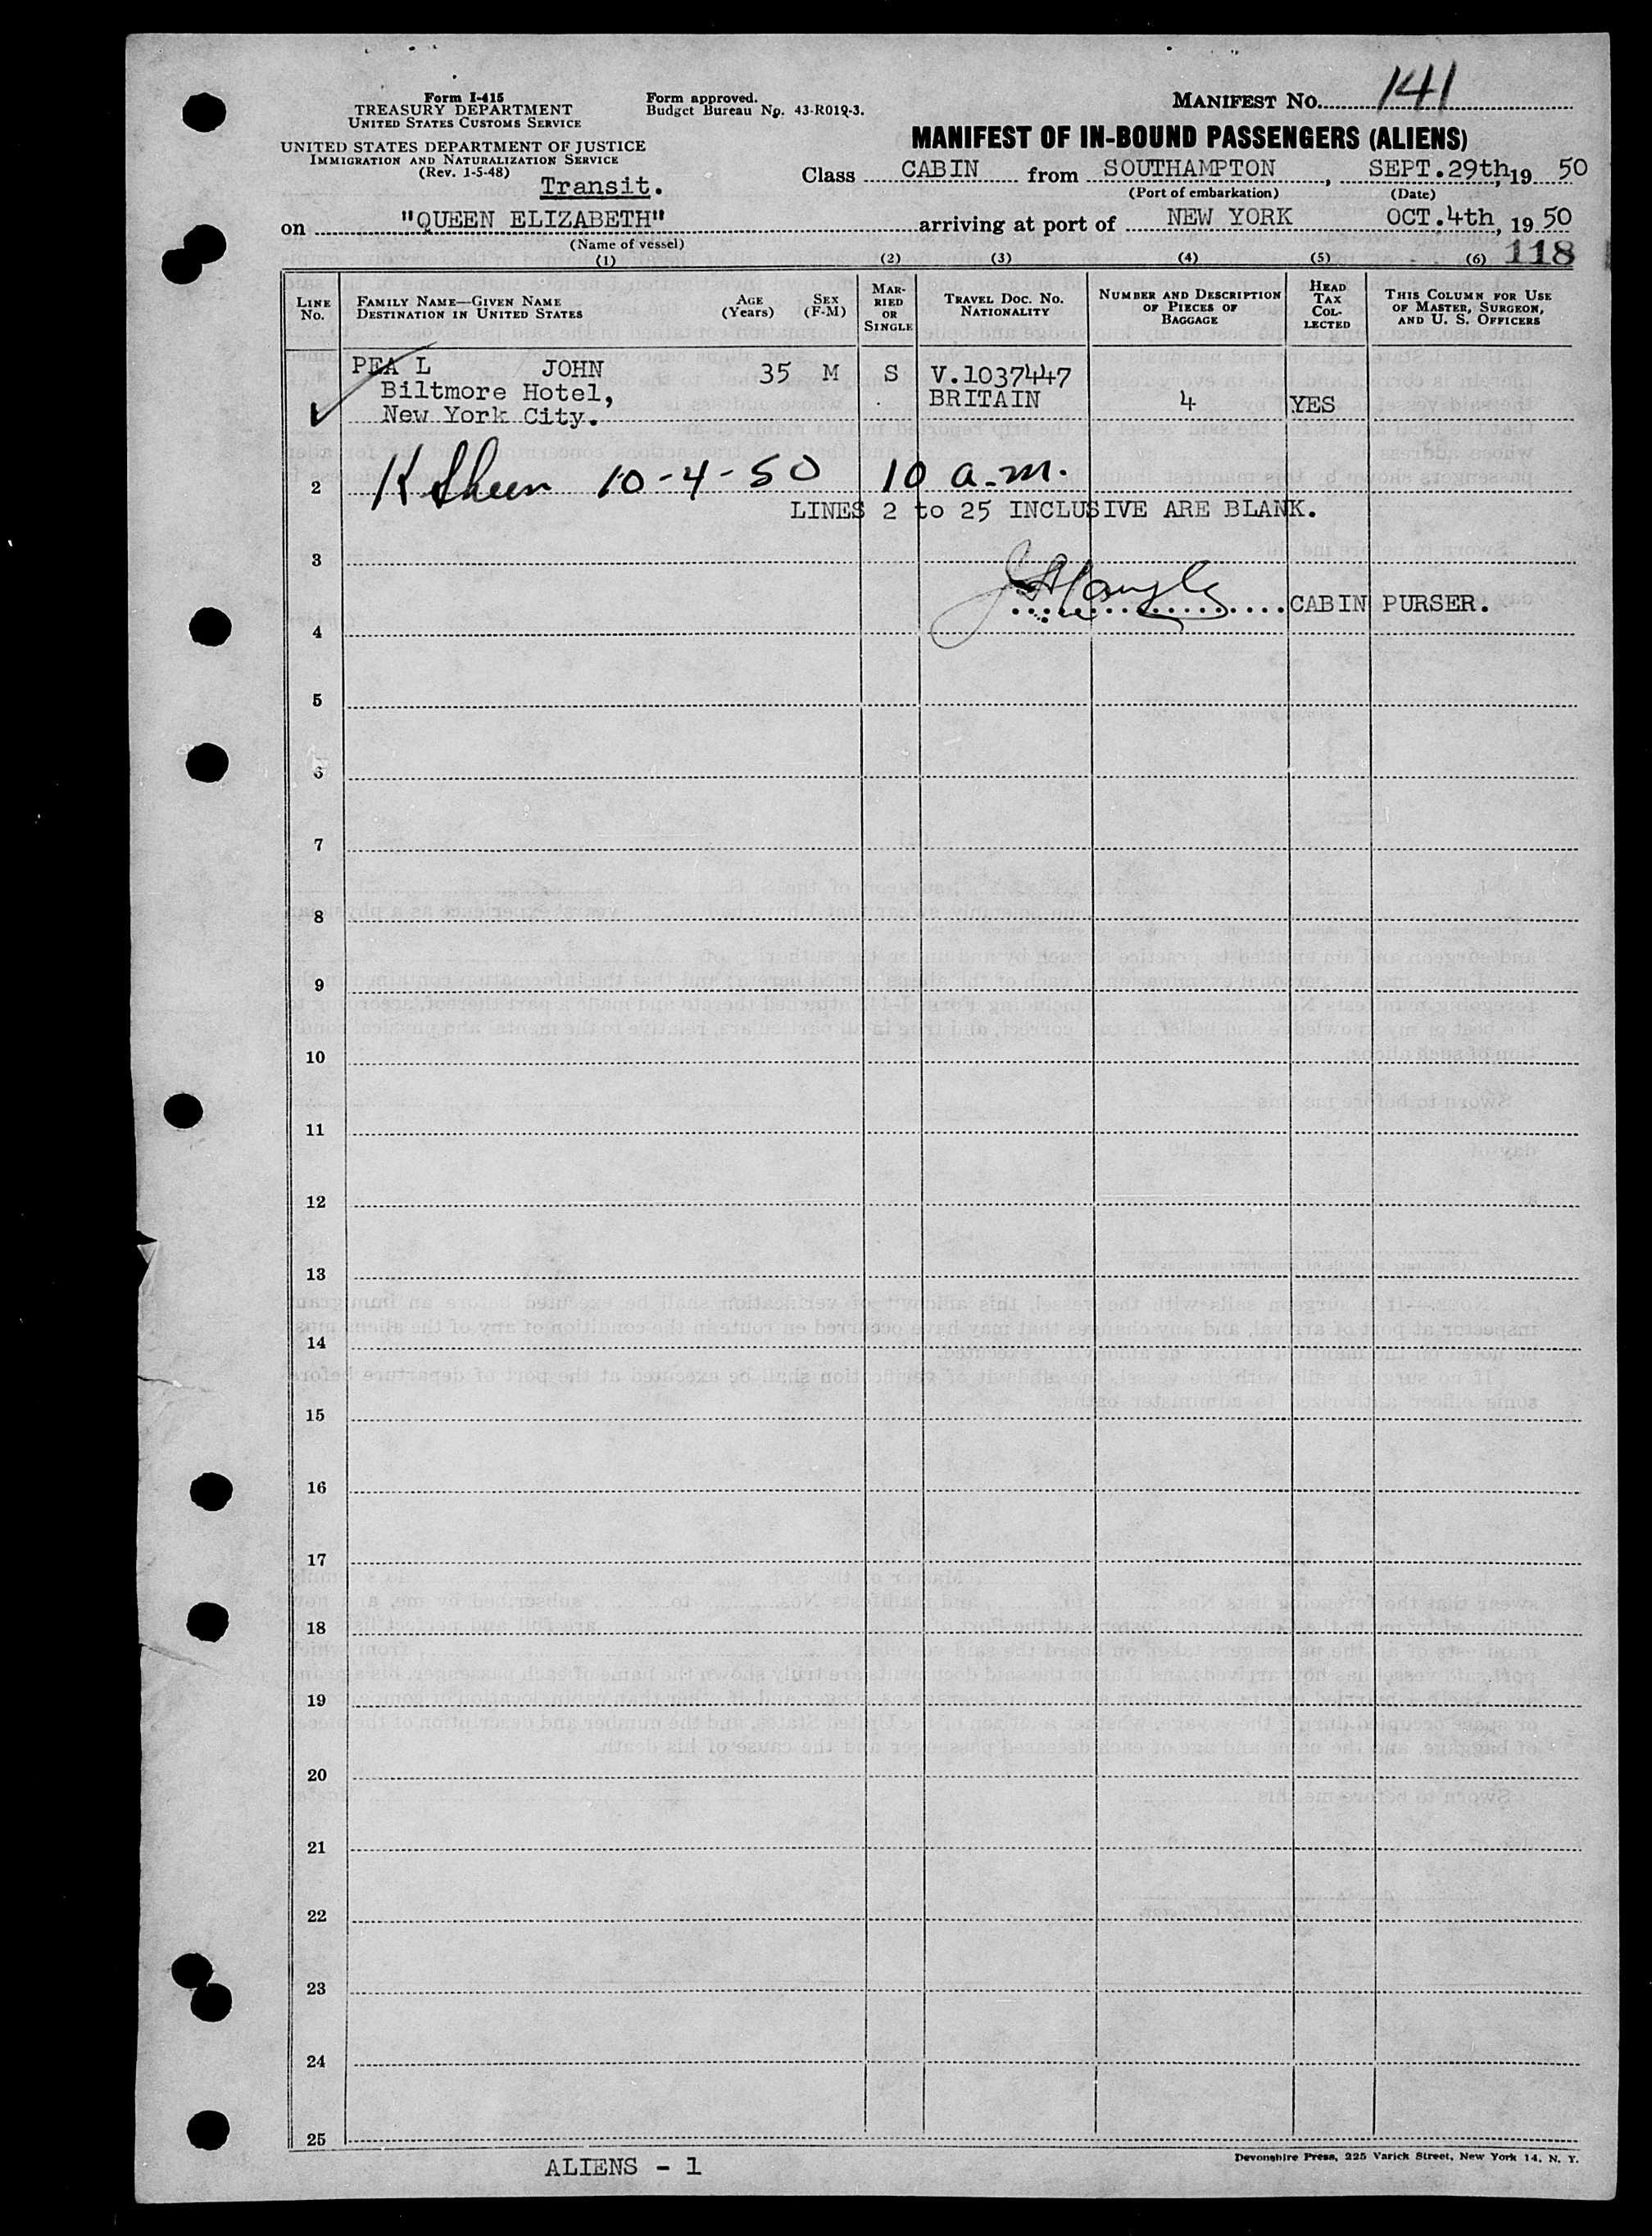 Form I-415
TREASURY DEPARTMENT
UNITED STATES CUSTOMS SERVICE
UNITED STATES DEPARTMENT OF JUSTICE
IMMIGRATION AND NATURALIZATION SERVICE
(Rev. 1-5-48)
Form approved.
Budget Bureau No. 43-R019-3.
MANIFEST NO. 141
MANIFEST OF IN-BOUND PASSENGERS (ALIENS)
Transit.
Class CABIN from SOUTHAMPTON, SEPT.29th, 19 50
(Port of embarkation) (Date)
on "QUEEN ELIZABETH" arriving at port of NEW YORK OCT.4th, 19 50
(Name of vessel)
118
(1) (2) (3) (4) (5) (6)
LINE NO.
FAMILY NAME—GIVEN NAME
DESTINATION IN UNITED STATES
AGE (Years)
SEX (F-M)
MARRIED OR SINGLE
TRAVEL DOC. NO.
NATIONALITY
NUMBER AND DESCRIPTION OF PIECES OF BAGGAGE
HEAD TAX COLLECTED
THIS COLUMN FOR USE OF MASTER, SURGEON, AND U. S. OFFICERS
PEA L JOHN 35 M S V.1037447
Biltmore Hotel, BRITAIN 4 YES
New York City.
2 10-4-50 10 a.m.
LINES 2 to 25 INCLUSIVE ARE BLANK.
3
CABIN PURSER.
4
5
6
7
8
9
10
11
12
13
14
15
16
17
18
19
20
21
22
23
24
25
ALIENS - 1
Devonshire Press, 225 Varick Street, New York 14, N. Y.